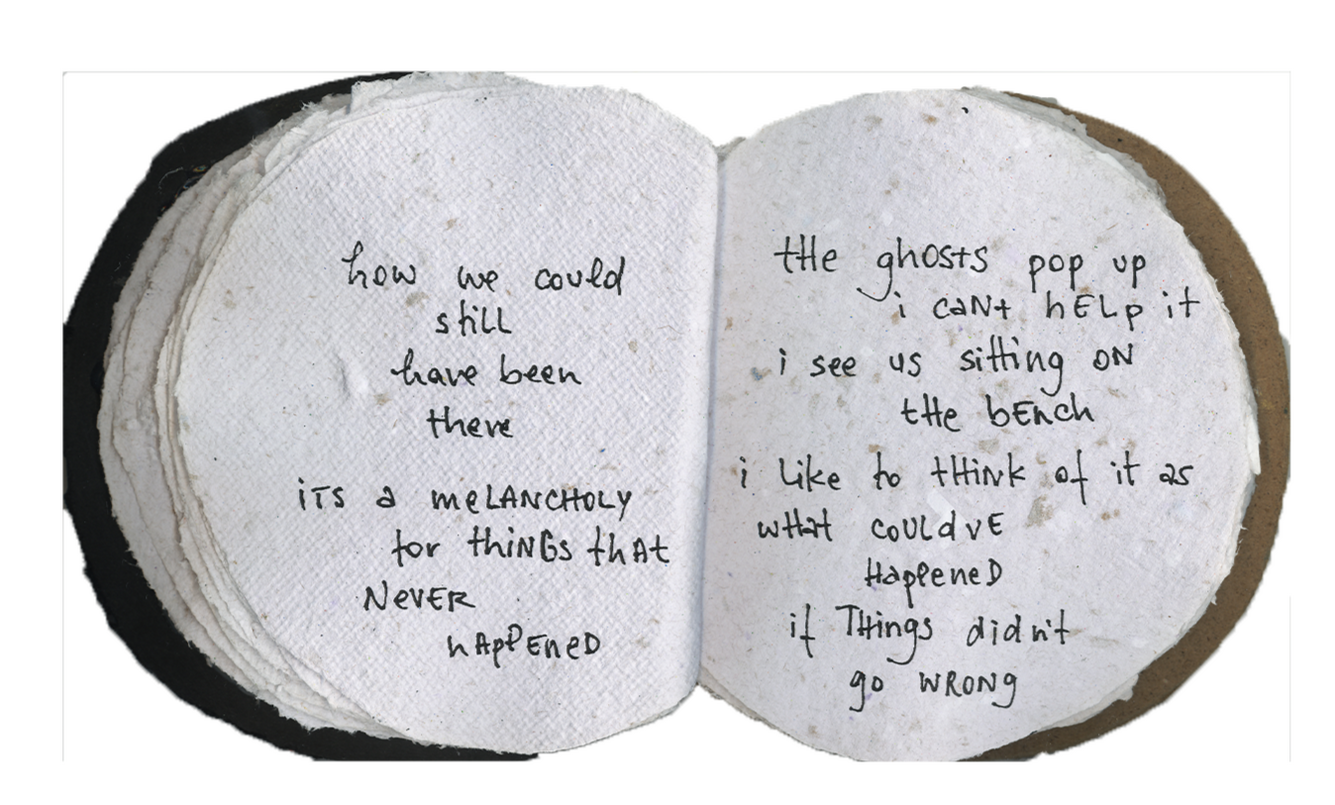 how we could
still
have been
there
iTS a meLANCHOLY
for thiNGs thAt
NeVER
hAppEneD
tHe ghosts pop up
i caNt hELp it
i see us sitting ON
tHe bEnch
i like to tHink of it as
wHat couLdvE
HappeneD
if THings didn't
go WRONg